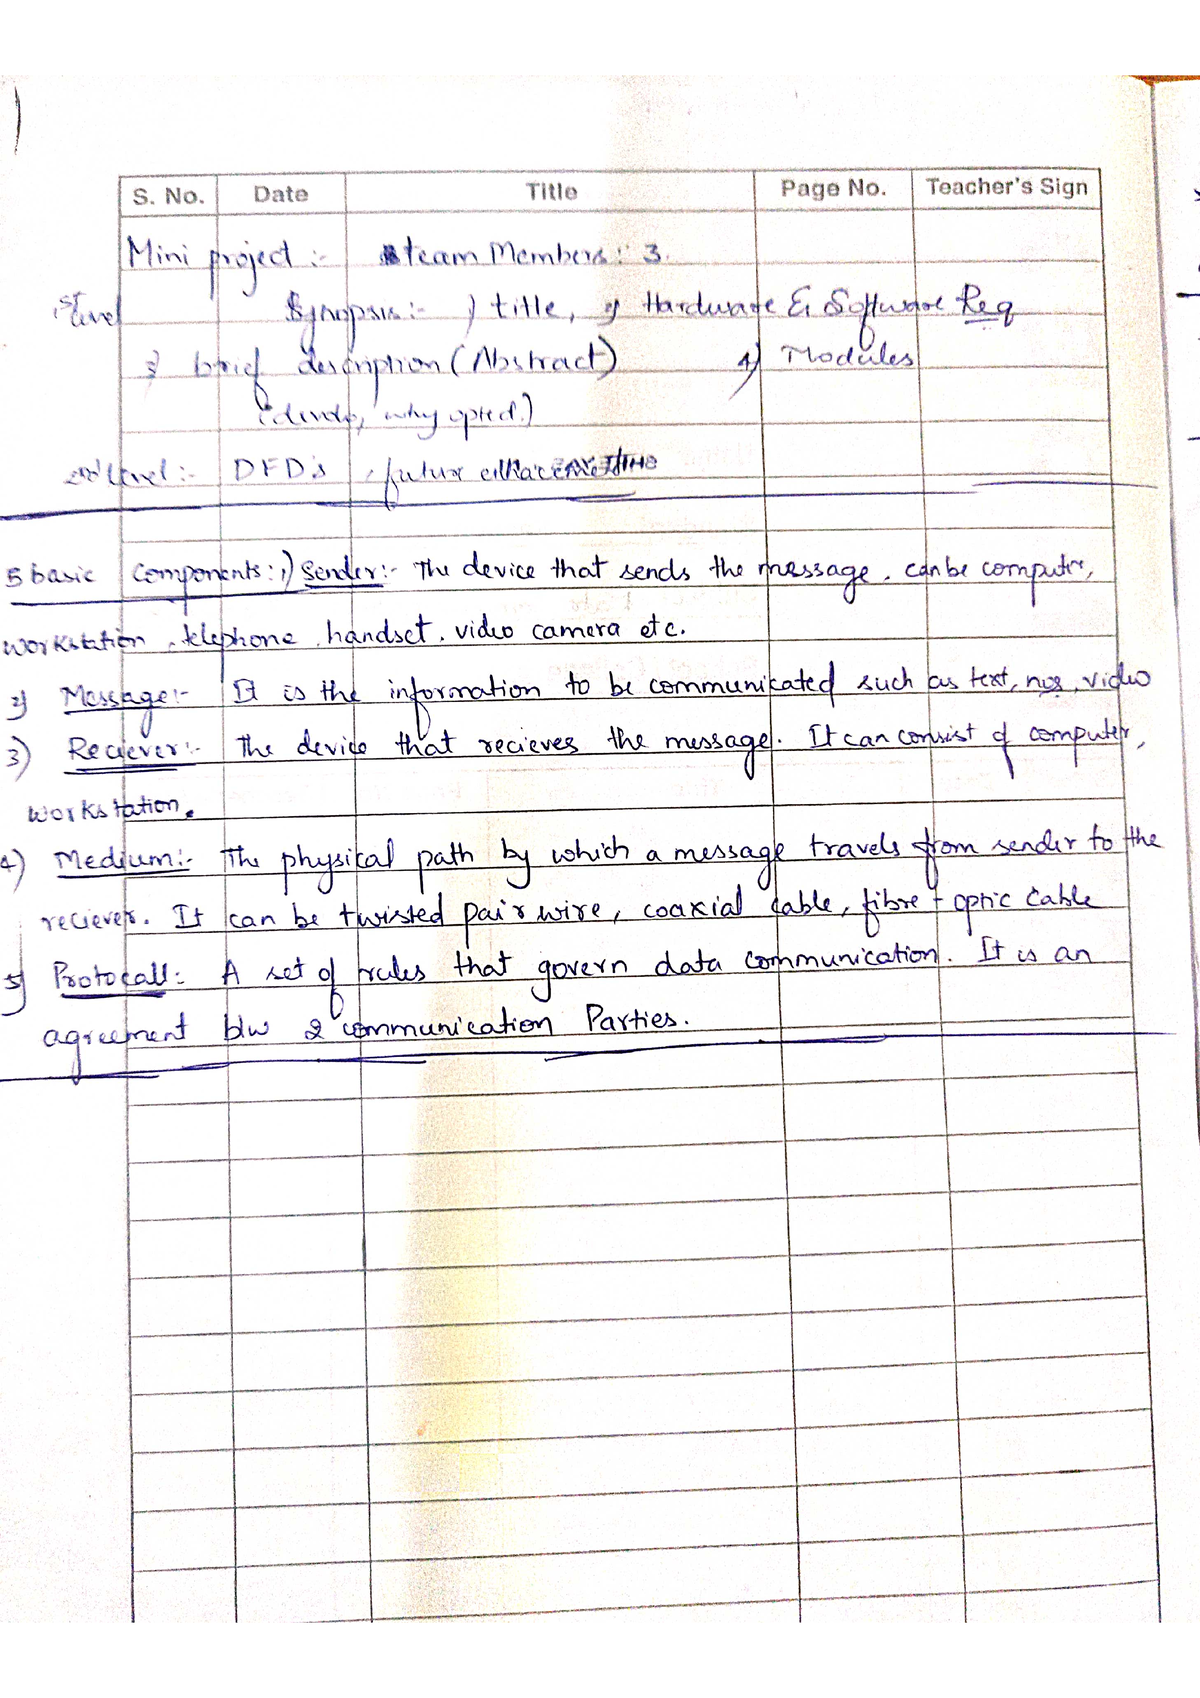 S. No. Date Title Page No. Teacher's Sign
Mini project :- team Members: 3.
1st level Synopsis:- 1) title, 2) Hardware & Software Req
3) brief description (Abstract) 4) Modules
why opted.)
2nd level:- DFD's, future
5 basic components: 1) Sender:- The device that sends the message, can be computer,
workstation, telephone, handset, video camera etc.
2) Message:- It is the information to be communicated such as text, nos, video
3) Reciever:- The device that recieves the message. It can consist of computer,
workstation.
4) Medium:- The physical path by which a message travels from sender to the
reciever. It can be twisted pair wire, coaxial cable, fibre-optic cable
5) Protocall: A set of rules that govern data communication. It is an
agreement b/w 2 communication Parties.